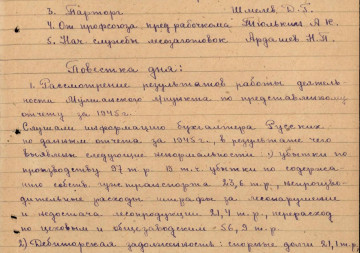 3. Парторга Шмелев, Д. Г.
4. От профсоюза пред. рабочкома Тюлькин А. К.
5. Нач. службы лесозаготовок Ардашев Н. П.
Повестка дня:
1. Рассмотрение результатов работы деятель-
ности Мулианского Мункина по представленному
отчету за 1945 г.
Слушали информацию бухгалтера Русских
по данным отчета за 1945 г., в результате чего
выявлены следующие ненормальности: 1) убытки по
производству 97 т. р. В т. ч. убытки по содержа-
нию собств. гужтранспорта 23,6 т. р., непроизво-
дительные расходы штрафы за лесонарушение
и недостача лесопродукции 21,4 т. р., перерасход
по цеховым и общезаводским - 56,9 т. р.
2) Дебиторская задолженность: спорные долги 21,1 т. р.,